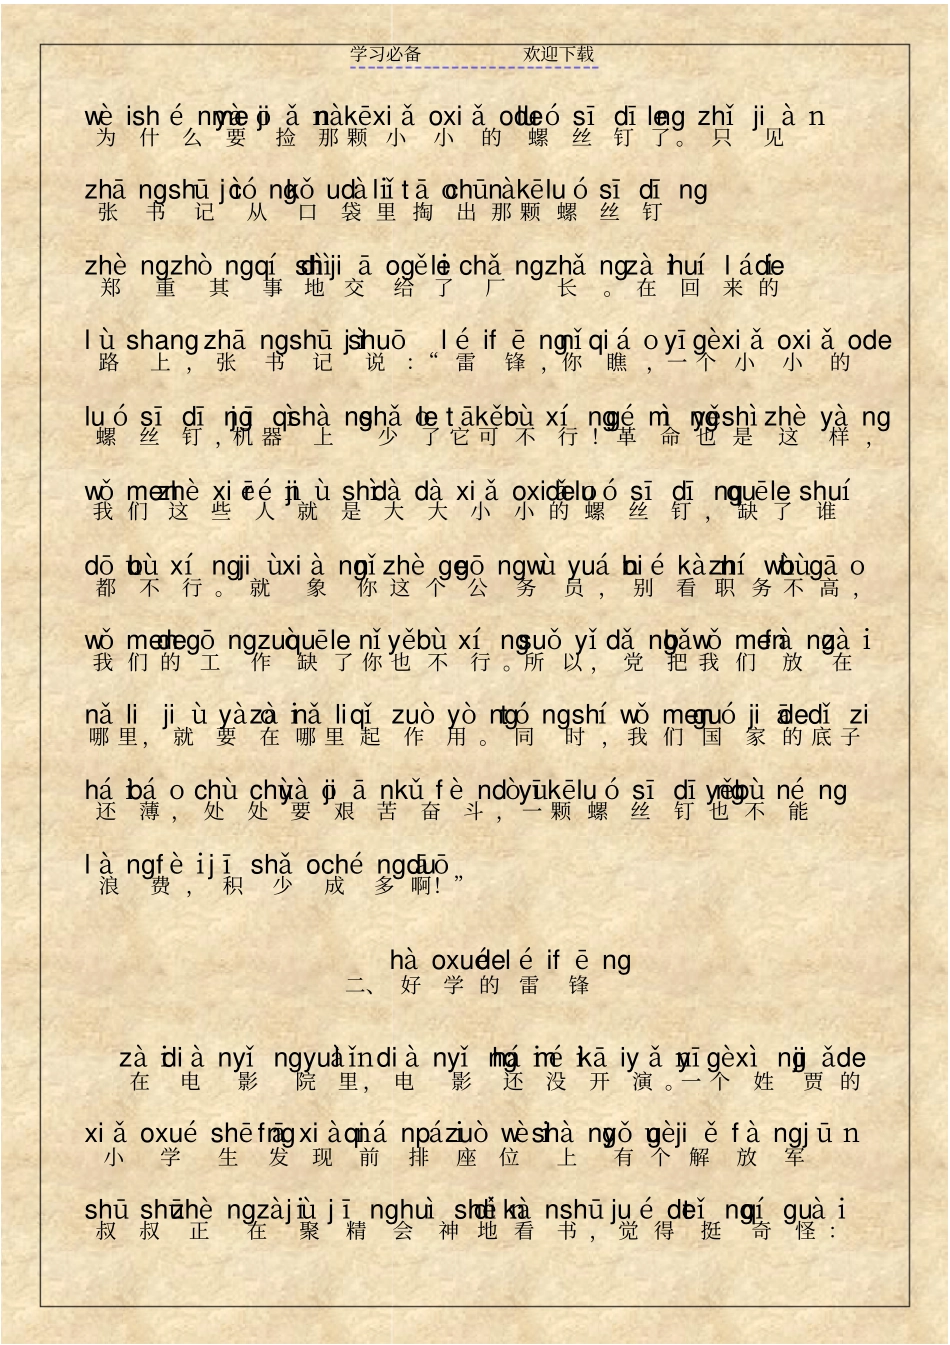 学习必备 欢迎下载
wèi shén me yào jiǎn nà kē xiǎo xiǎo de luó sī dīng le zhǐ jiàn
为什么要捡那颗小小的螺丝钉了。只见
zhāng shū jì cóng kǒu dài lǐ tāo chū nà kē luó sī dīng
张书记从口袋里掏出那颗螺丝钉
zhèng zhòng qí shì dì jiāo gěi le chǎng zhǎng zài huí lái de
郑重其事地交给了厂长。在回来的
lù shang zhāng shū jì shuō léi fēng nǐ qiáo yī gè xiǎo xiǎo de
路上,张书记说:“雷锋,你瞧,一个小小的
luó sī dīng jī qì shàng shǎo le tā kě bù xíng gé mìng yě shì zhè yàng
螺丝钉,机器上少了它可不行!革命也是这样,
wǒ men zhè xiē rén jiù shì dà dà xiǎo xiǎo de luó sī dīng quē le shuí
我们这些人就是大大小小的螺丝钉,缺了谁
dōu bù xíng jiù xiàng nǐ zhè ge gōng wù yuán bié kàn zhí wù bù gāo
都不行。就象你这个公务员,别看职务不高,
wǒ men de gōng zuò quē le nǐ yě bù xíng suǒ yǐ dǎng bǎ wǒ men fàng zài
我们的工作缺了你也不行。所以,党把我们放在
nǎ li jiù yào zài nǎ li qǐ zuò yòng tóng shí wǒ men guó jiā de dǐ zi
哪里,就要在哪里起作用。同时,我们国家的底子
hái báo chù chù yào jiān kǔ fèn dòu yī kē luó sī dīng yě bù néng
还薄,处处要艰苦奋斗,一颗螺丝钉也不能
làng fèi jī shǎo chéng duō ā
浪费,积少成多啊!”
hào xué de léi fēng
二、好学的雷锋
zài diàn yǐng yuàn lǐ diàn yǐng hái méi kāi yǎn yī gè xìng jiǎ de
在电影院里,电影还没开演。一个姓贾的
xiǎo xué shēng fā xiàn qián pái zuò wèi shàng yǒu gè jiě fàng jūn
小学生发现前排座位上有个解放军
shū shū zhèng zài jù jīng huì shén de kàn shū jué de tǐng qí guài
叔叔正在聚精会神地看书,觉得挺奇怪: